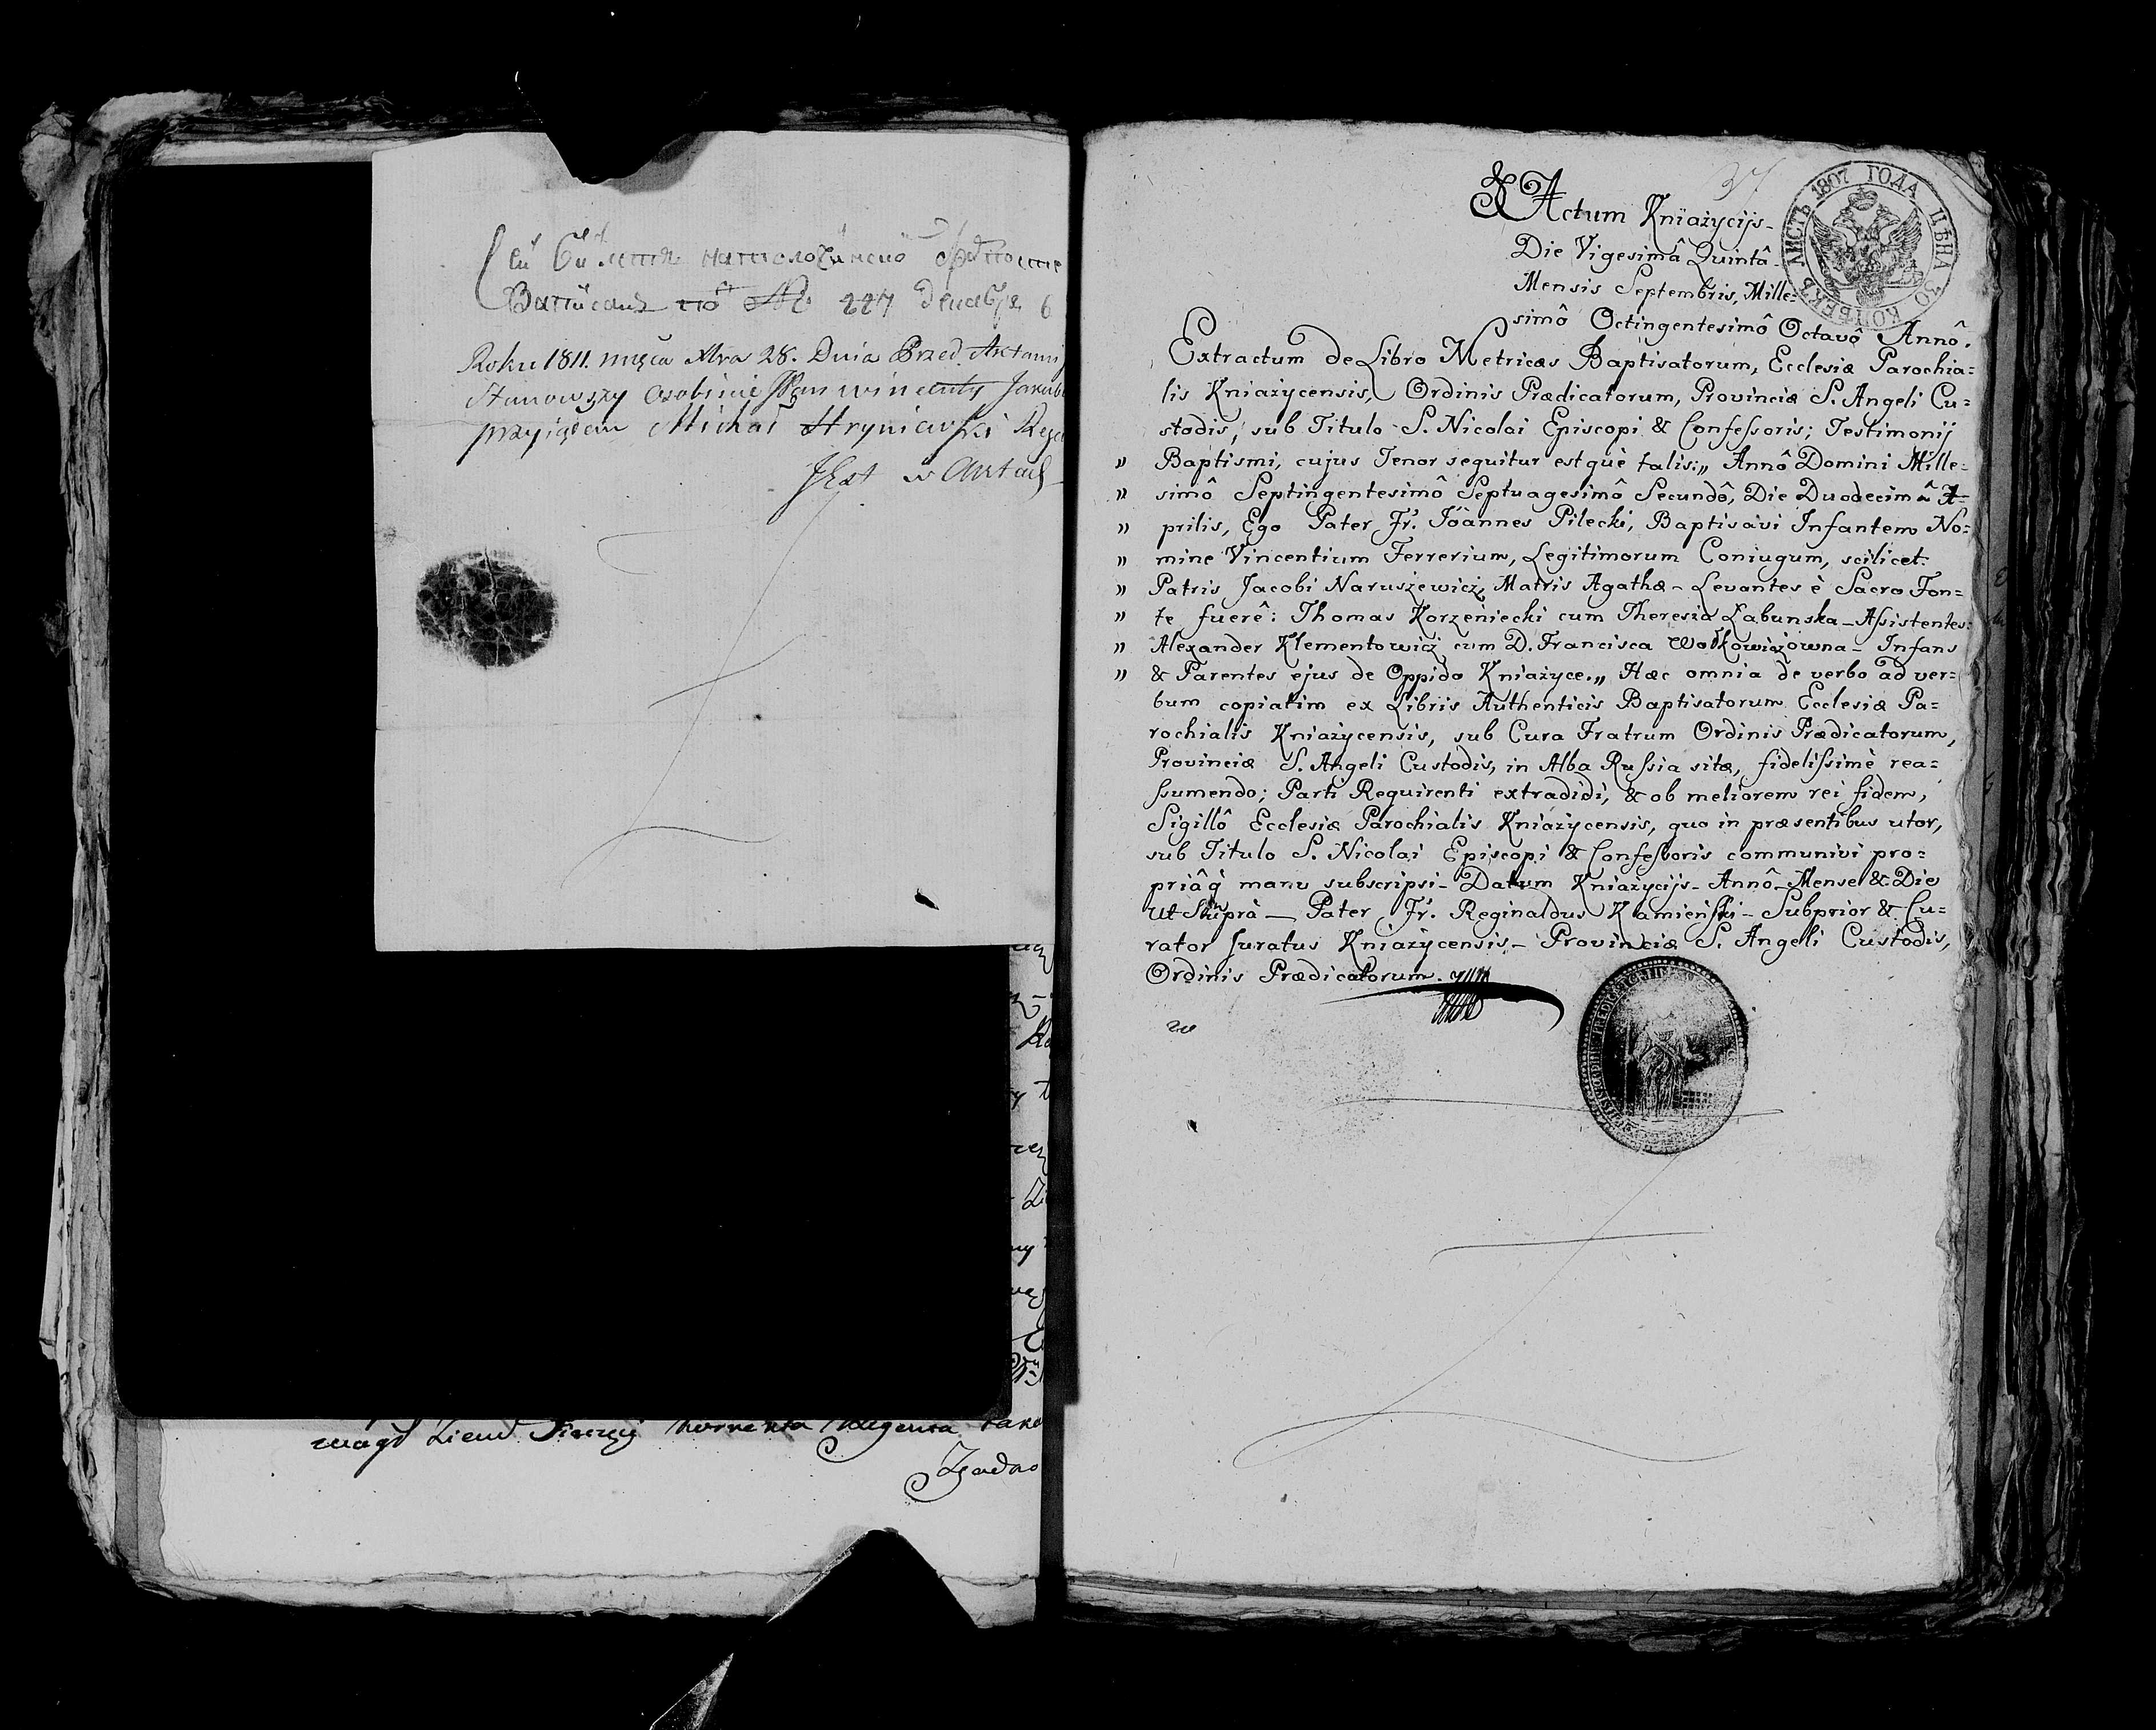 Roku 1811. mięca Xbra 28. Dnia Przed Aktami
Stanowszy Osobiscie Pan Wincenty Jakub
przyjąłem Michał Hryniewski Reg
Jest w Aktach
37
Actum Kniażycijs
Die Vigesimâ Quintâ
Mensis Septembris, Mille=
simô Octingentesimô Octavô Annô.
ЛИСТЪ 1807 ГОДА ЦѢНА 30 КОПѢЕКЪ
Extractum de Libro Metrices Baptisatorum, Ecclesiæ Parochia=
lis Kniażycensis, Ordinis Prædicatorum, Provinciæ S. Angeli Cu=
stodis, sub Titulo S. Nicolai Episcopi & Confessoris; Testimonij
" Baptismi, cujus Tenor sequitur estquè talis:,, Annô Domini Mille=
" simô Septingentesimô Septuagesimô Secundô, Die Duodecimâ A=
" prilis, Ego Pater Fr. Jòannes Pilecki, Baptisavi Infantem No=
" mine Vincentium Ferrerium, Legitimorum Coniugum, scilicet:
" Patris Jacobi Naruszewicz, Matris Agathæ - Levantes è Sacro Fon=
" te fuerê: Thomas Korzeniecki cum Theresia Łabunska - Assistentes:
" Alexander Klementowicz cum D. Francisca Wołkowiczowna - Infans
" & Parentes ejus de Oppido Kniażyce.,, Hæc omnia de verbo ad ver=
bum copiatim ex Libris Authenticis Baptisatorum Ecclesiæ Pa=
rochialis Kniażycensis, sub Cura Fratrum Ordinis Prædicatorum,
Provinciæ S. Angeli Custodis, in Alba Russia sitæ, fidelissimè rea=
ssumendo; Parti Requirenti extradidi, & ob meliorem rei fidem,
Sigillô Ecclesiæ Parochialis Kniażycensis, quo in præsentibus utor,
sub Titulo S. Nicolai Episcopi & Confessoris communivi pro=
priâq̀ manu subscripsi - Datum Kniażycijs - Annô - Mense & Die
ut Suprà — Pater Fr. Reginaldus Kamieński - Subprior & Cu=
rator Juratus Kniażycensis - Provinciæ S. Angeli Custodis,
Ordinis Prædicatorum.